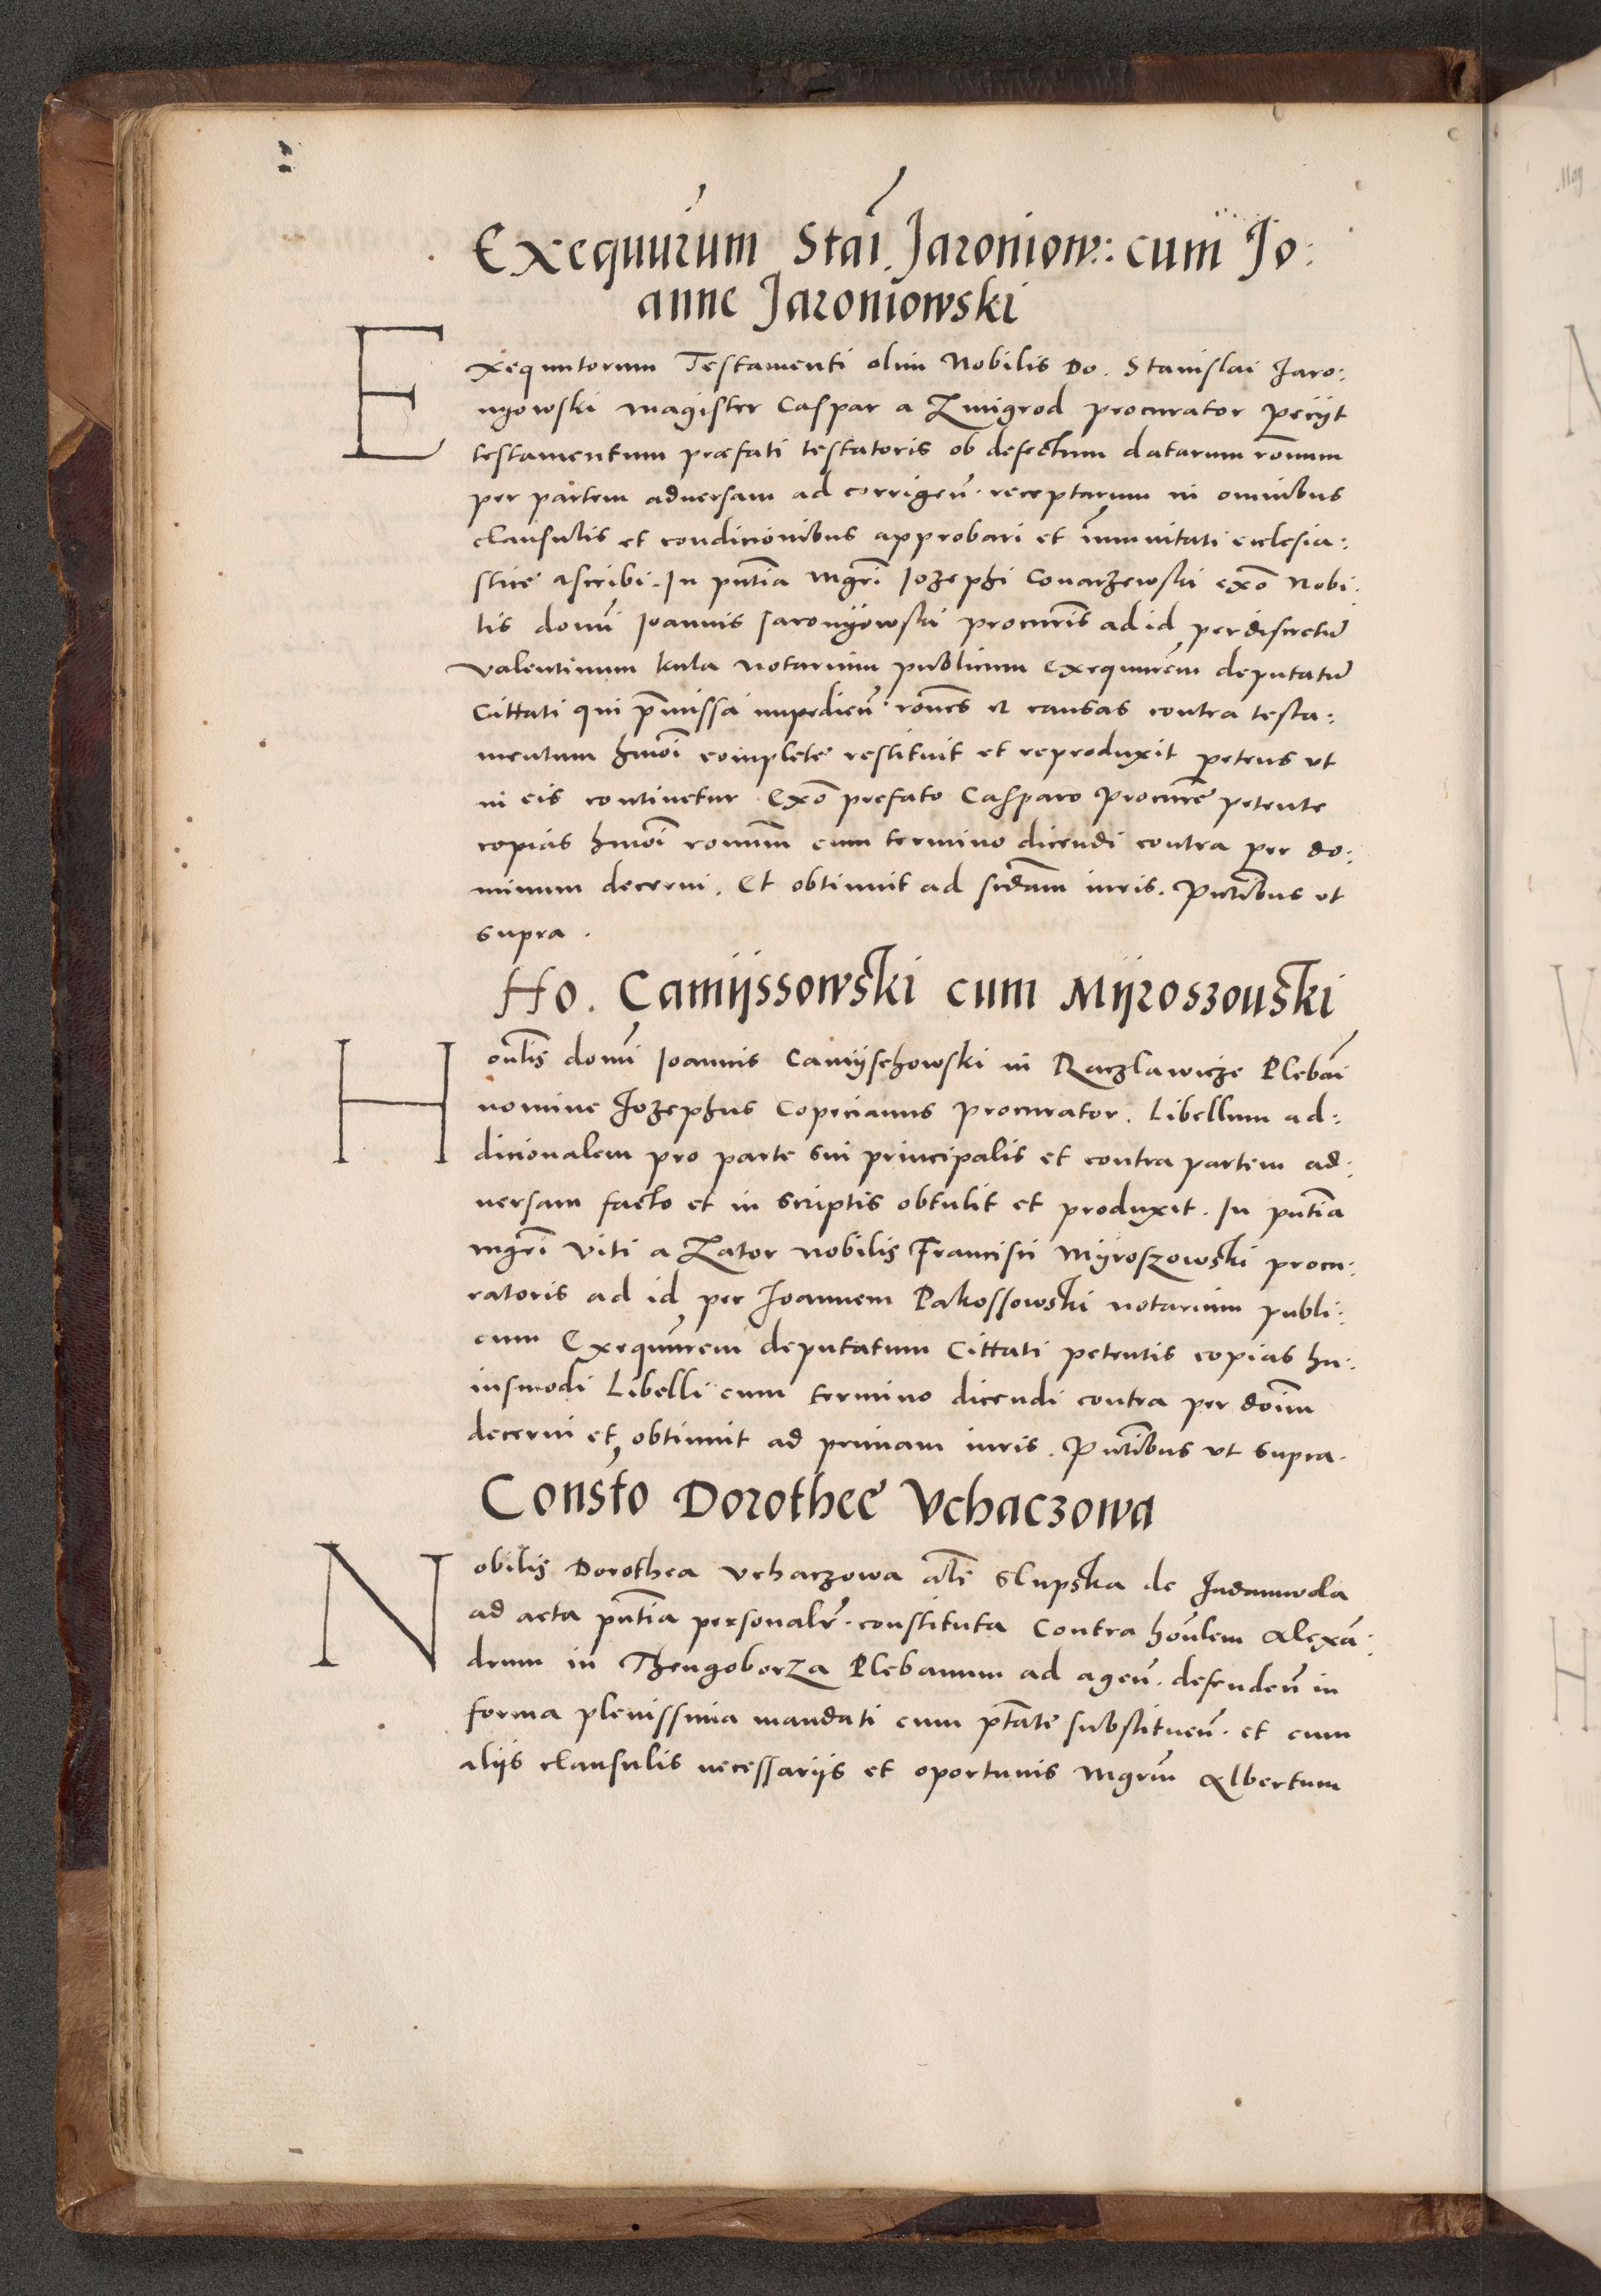 Exequurum Stai. Jaroniow: cum Jo:
anne Jaroniowski
Exequutorum Testamenti olim Nobilis Do. Stanislai Jaro:
nyowski magister Caspar a Zmigrod procurator peciit
testamentum præfati testatoris ob defectum datarum ronum
per partem adversam ad corrigen̄. receptarum in omnibus
clausulis et condicionibus approbari et im̄unitati ecclesia:
stice ascribi. In pn̄tia mgr̄i Jozephi Conarzewski exō Nobi:
lis domī Joannis Jaronyowski procur̄is ad id per discretū
Valentinum kula notarium publicum exequur̄em deputatū
Cittati qui p̄missa impedien̄. rōnes et causas contra testa:
mentum hmōi complete restituit et reproduxit petens ut
in eis continetur Exō prefato Casparo Procur̄e petente
copias hmōi ronum̄ cum termino dicendi contra per do:
minum decerni. Et obtinuit ad scd̄am iuris. Pn̄tibus ut
supra.
Ho. Camijssowski cum Mijroszouski
Hon̄lis domī Joannis Camijschowski in Raczlawicze Plebāi
nomine Jozephus Copecianus procurator. Libellum ad:
dicionalem pro parte sui principalis et contra partem ad:
uersam facto et in scriptis obtulit et produxit. In pn̄tia
mgr̄i Viti a Zator nobilis Francisci Mijroszowski procu:
ratoris ad id per Joannem Pakossowski notarium publi:
cum Exequur̄em deputatum Cittati petentis copias hu:
iusmodi Libelli cum termino dicendi contra per doīm
decerni et obtinuit ad primam iuris. Pn̄tibus ut supra.
Consto Dorothee Vchaczowa
Nobilis Dorothea Vchaczowa al̄s Slupska de Judamwola
ad acta pn̄tia personalr̄. constituta Contra hon̄lem Alexā:
drum in Thengoborza Plebanum ad agen̄. defenden̄ in
forma plenissima mandati cum ptāte substituen̄. et cum
aliis clausulis necessariis et oportunis mgrm̄ Albertum